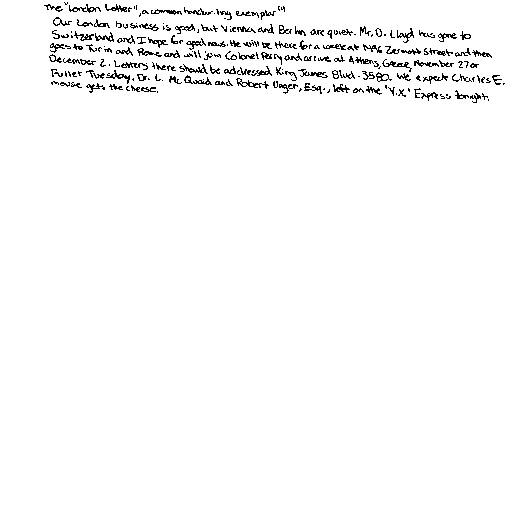 The "London Letter", a common handwriting exemplar"
Our London business is good, but Vienna and Berlin are quiet. Mr. D. Lloyd has gone to
Switzerland and I hope for good news. He will be there for a week at 1496 Zermott Street and then
goes to Turin and Rome and will join Colonel Parry and arrive at Athens, Greece, November 27 or
December 2. Letters there should be addressed King James Blvd. 3580. We expect Charles E.
Fuller Tuesday. Dr. L. McQuaid and Robert Unger, Esq., left on the "Y.X." Express tonight.
mouse gets the cheese.